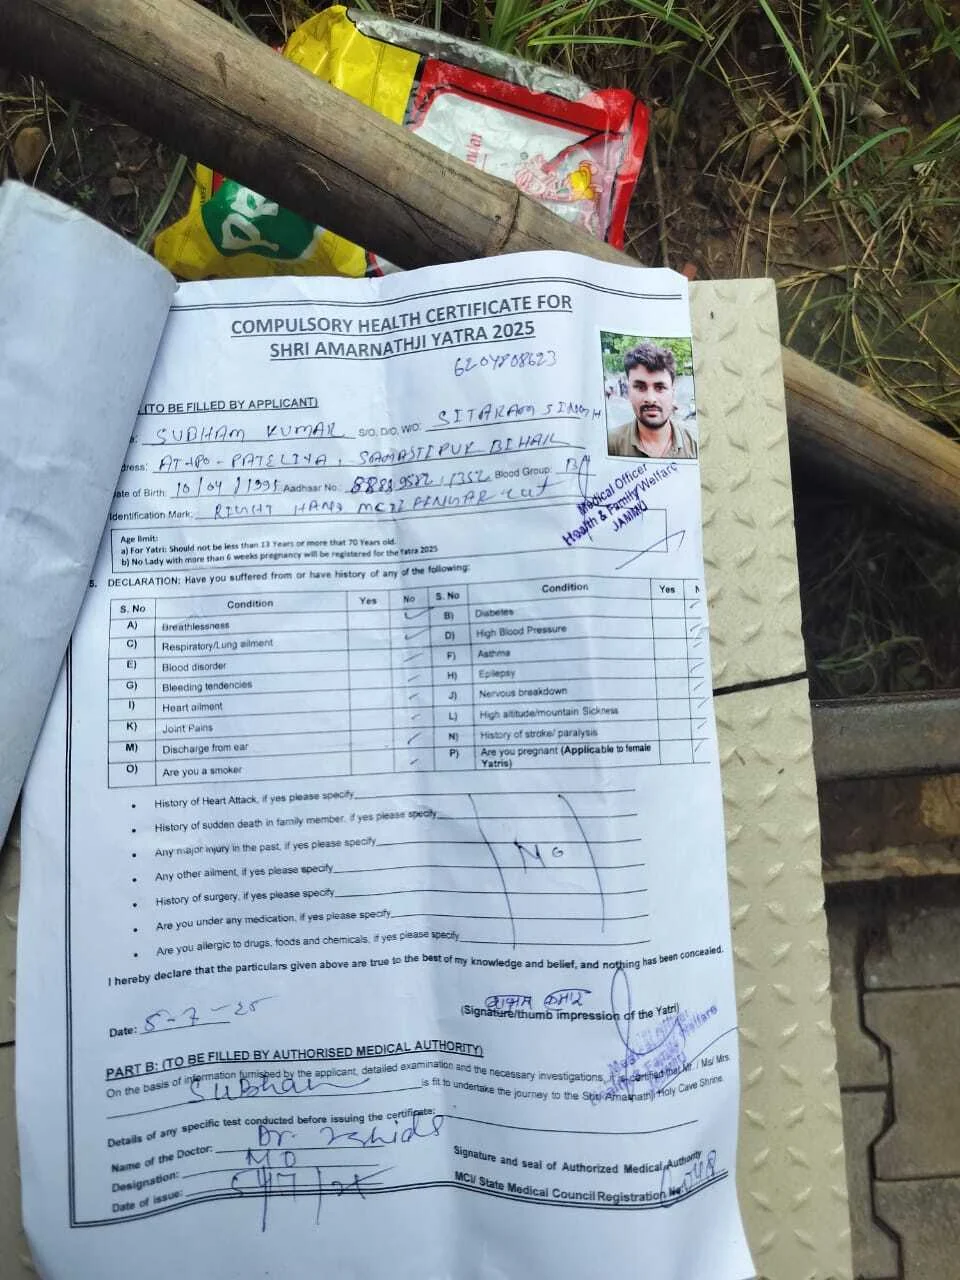 COMPULSORY HEALTH CERTIFICATE FOR
SHRI AMARNATHJI YATRA 2025
6204808623
(TO BE FILLED BY APPLICANT)
SUBHAM KUMAR S/O, D/O, W/O: SITARAM SINGH
dress: PATELIYA, SAMASTIPUR BIHAR
ate of Birth: 10/04/1995 Aadhaar No.: Blood Group: B
Identification Mark: RIGHT HAND CUT
Medical Officer
Health & Family Welfare
JAMMU
Age limit:
a) For Yatri: Should not be less than 13 Years or more than 70 Years old.
b) No Lady with more than 6 weeks pregnancy will be registered for the Yatra 2025
5. DECLARATION: Have you suffered from or have history of any of the following:
S. No Condition Yes No S. No Condition Yes N
A) Breathlessness B) Diabetes
C) Respiratory/Lung ailment D) High Blood Pressure
E) Blood disorder F) Asthma
G) Bleeding tendencies H) Epilepsy
I) Heart ailment J) Nervous breakdown
K) Joint Pains L) High altitude/mountain Sickness
M) Discharge from ear N) History of stroke/ paralysis
O) Are you a smoker P) Are you pregnant (Applicable to female
Yatris)
• History of Heart Attack, if yes please specify
• History of sudden death in family member, if yes please specify
• Any major injury in the past, if yes please specify
No
• Any other ailment, if yes please specify
• History of surgery, if yes please specify
• Are you under any medication, if yes please specify
• Are you allergic to drugs, foods and chemicals, if yes please specify
I hereby declare that the particulars given above are true to the best of my knowledge and belief, and nothing has been concealed.
Date: 5-7-25
(Signature/thumb impression of the Yatri)
PART B: (TO BE FILLED BY AUTHORISED MEDICAL AUTHORITY)
On the basis of information furnished by the applicant, detailed examination and the necessary investigations, it is certified that Mr. / Ms/ Mrs.
Subham is fit to undertake the journey to the Shri Amarnathji Holy Cave Shrine.
Details of any specific test conducted before issuing the certificate:
Name of the Doctor: Dr
Designation: MO
Date of issue:
Signature and seal of Authorized Medical Authority
MCI/ State Medical Council Registration No.